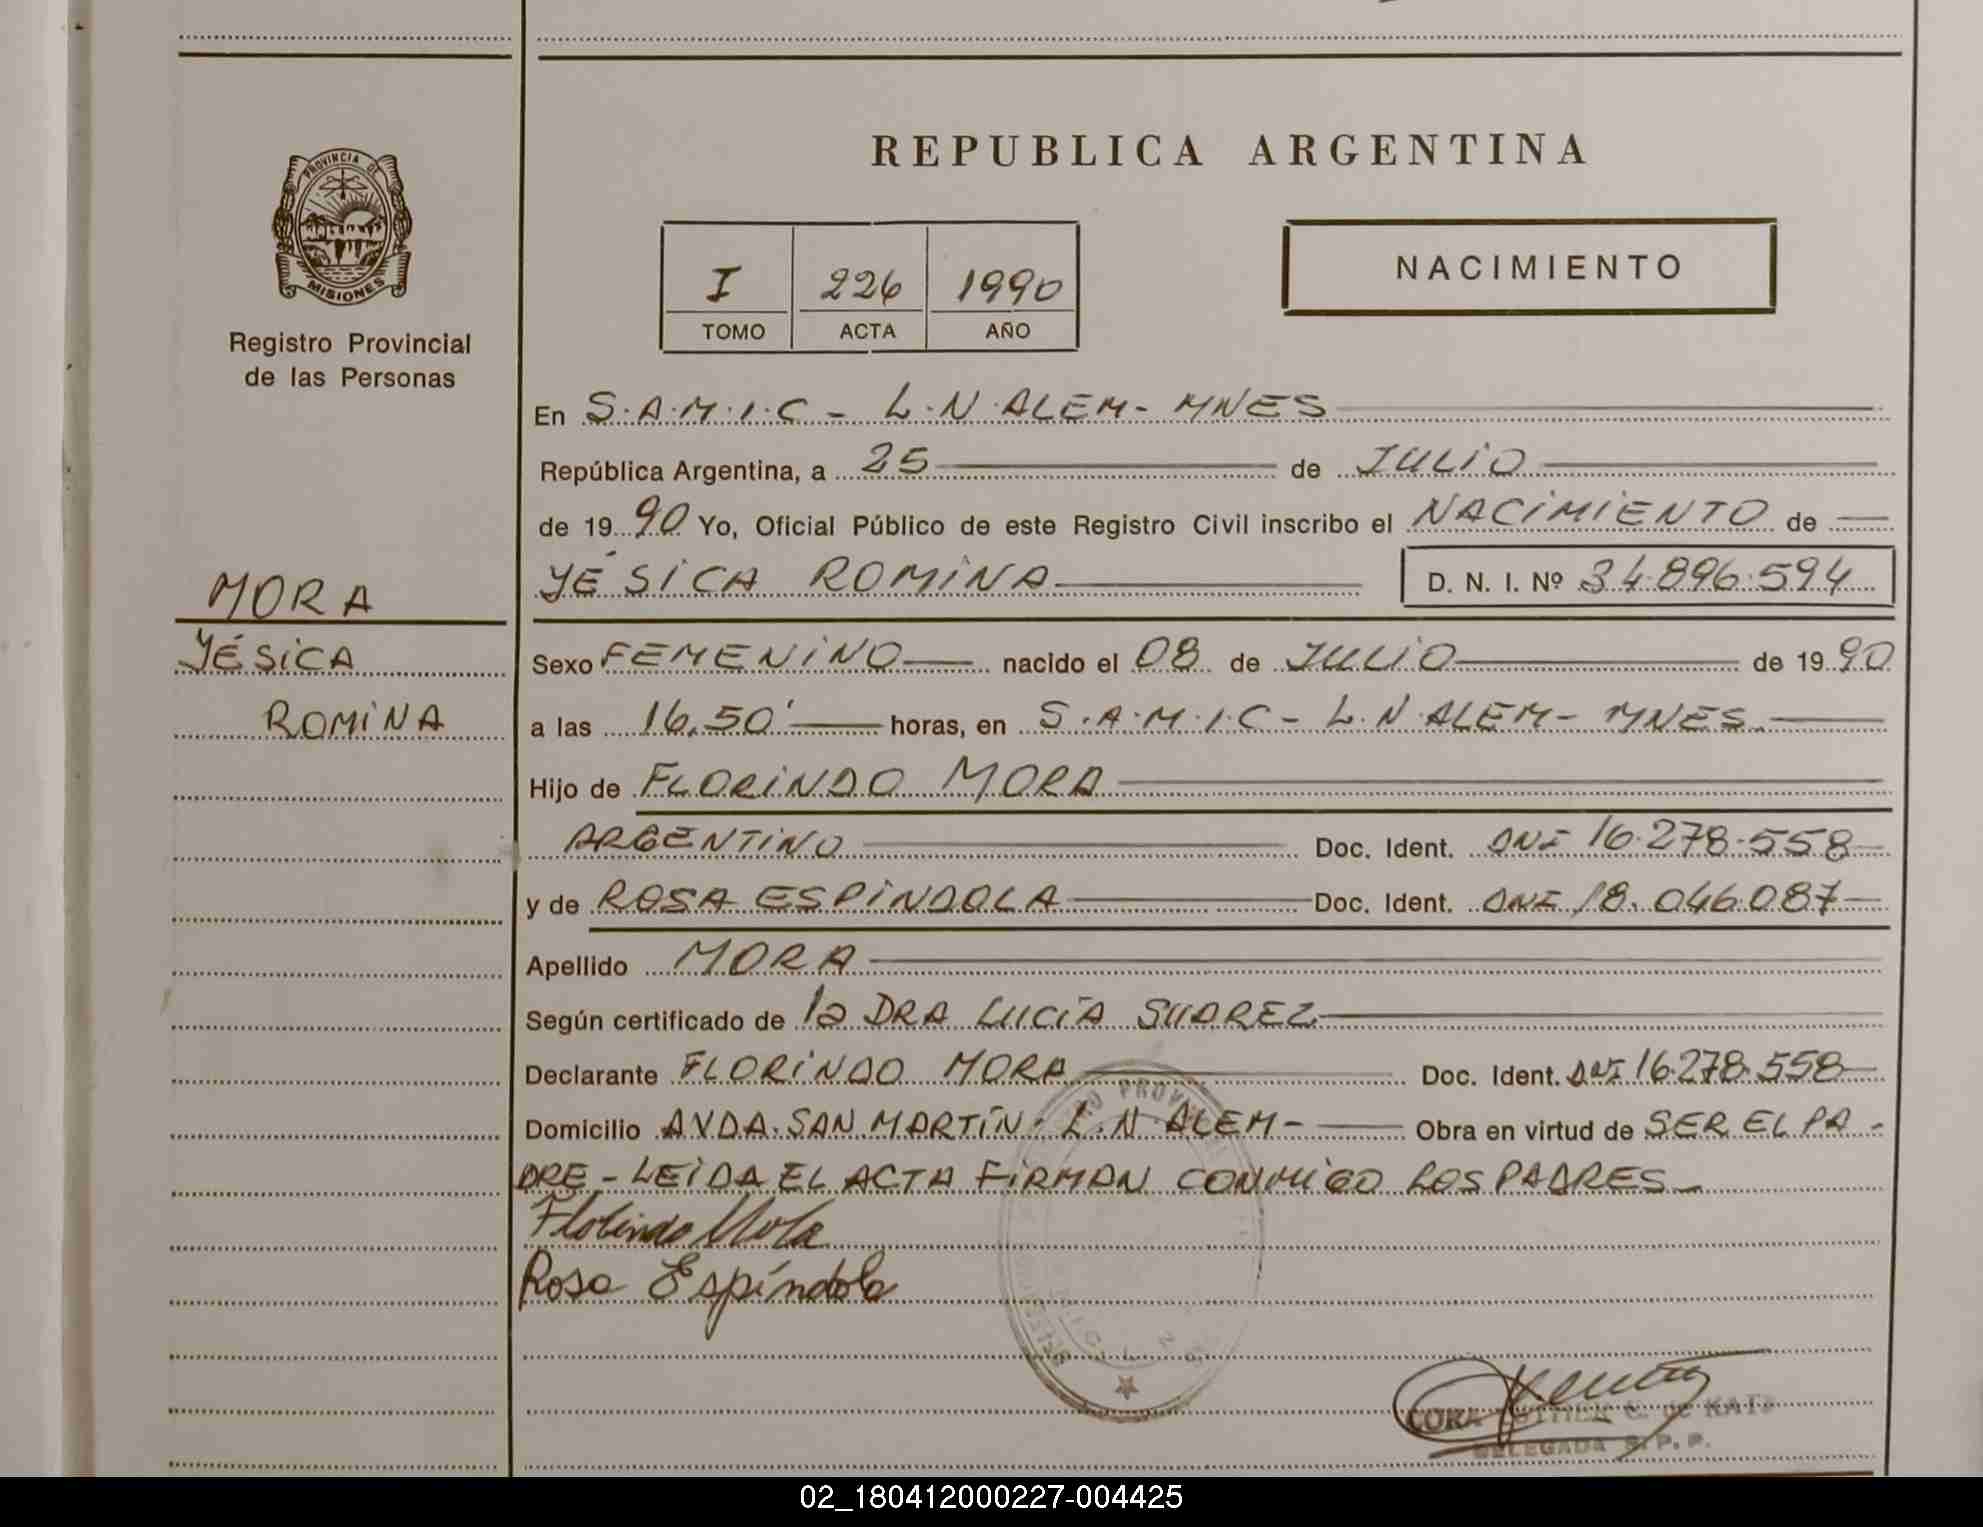 REPUBLICA ARGENTINA
PROVINCIA DE
MISIONES
Registro Provincial
de las Personas
I 226 1990
TOMO ACTA AÑO
NACIMIENTO
En S.A.M.I.C - L.N.ALEM - MNES
República Argentina, a 25 de JULIO
de 1990 Yo, Oficial Público de este Registro Civil inscribo el NACIMIENTO de
YÉSICA ROMINA D. N. I. Nº 34.896.594
MORA
YÉSICA
ROMINA
Sexo FEMENINO nacido el 08 de JULIO de 1990
a las 16,50' horas, en S.A.M.I.C - L.N.ALEM - MNES.
Hijo de FLORINDO MORA
ARGENTINO Doc. Ident. DNI 16.278.558
y de ROSA ESPINDOLA Doc. Ident. DNI 18.046.087
Apellido MORA
Según certificado de la DRA LUCÍA SUAREZ
Declarante FLORINDO MORA Doc. Ident. DNI 16.278.558
Domicilio AVDA. SAN MARTÍN. L.N.ALEM - Obra en virtud de SER EL PA-
DRE - LEIDA EL ACTA FIRMAN CONMIGO LOS PADRES -
Florindo Mora
Rosa Espíndola
PROVIN
C. de KATZ
DELEGADA R. P. P.
02_180412000227-004425